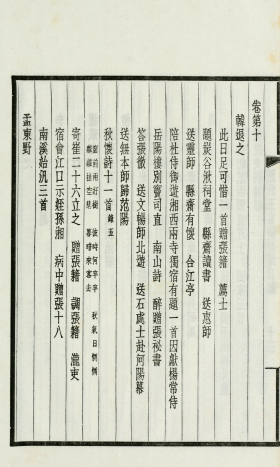 卷第十
韓退之
此日足可惜一首贈張籍 薦士
題炭谷湫祠堂 縣齋讀書 送惠師
送靈師 縣齋有懷 合江亭
陪杜侍御遊湘西兩寺獨宿有題一首因獻楊常侍
岳陽樓別竇司直 南山詩 醉贈張祕書
答張徹 送文暢師北遊 送石處士赴河陽幕
送無本師歸范陽
秋懷詩十一首 錄五
窗前兩好樹 彼時何卒卒 秋氣日惻惻
卷卷落地葉 暮暗來客去
寄崔二十六立之 贈張籍 調張籍 瀧吏
宿曾江口示姪孫湘 病中贈張十八
南溪始汎三首
孟東野